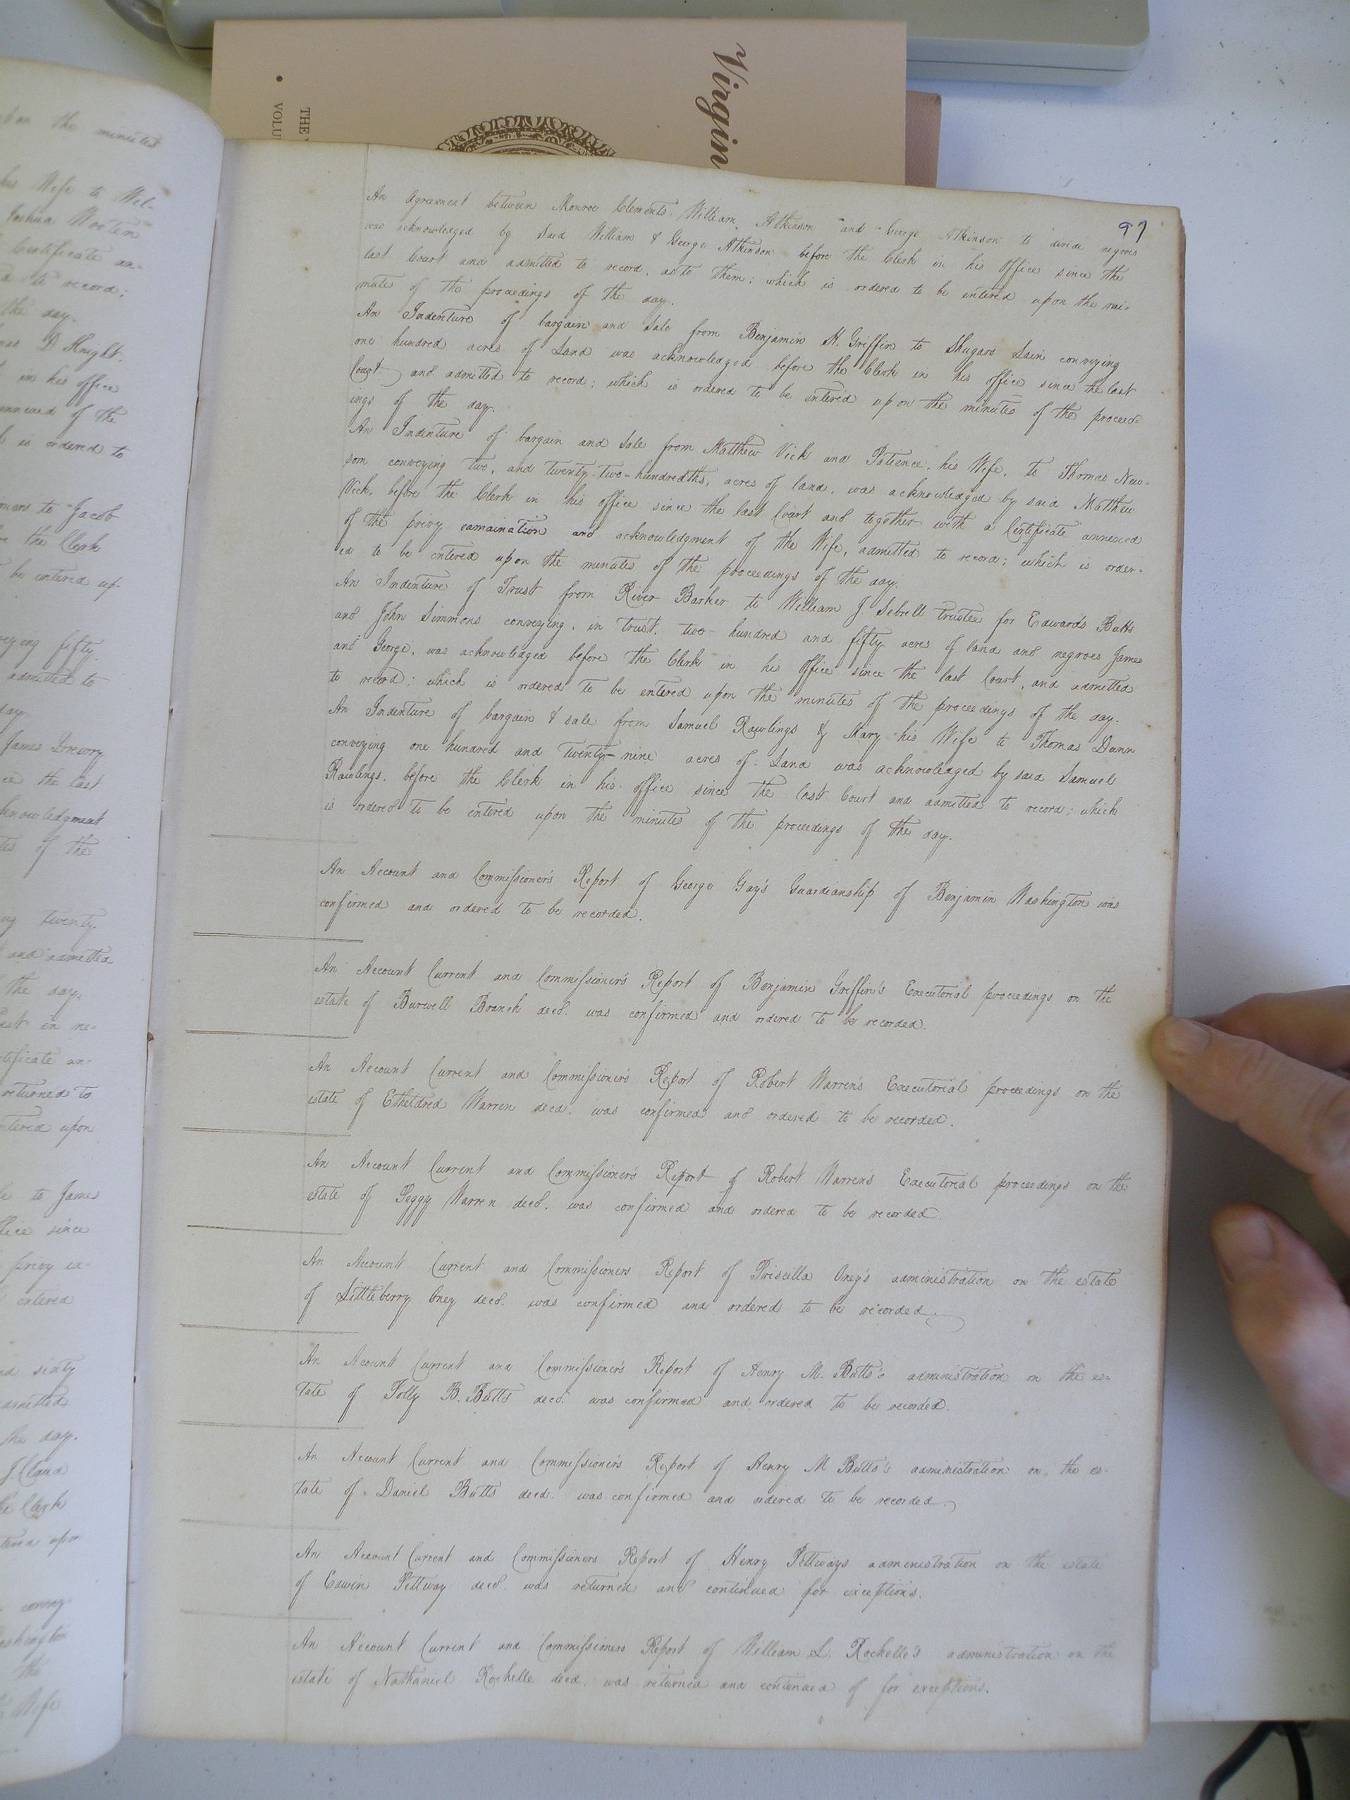 Virgin
THE
VOLU
upon the minutes
his Wife to Wel-
Joshua Wooten
Certificate an-
to record;
the day.
D Knight.
in his office
annexed of the
is ordered to
to Jacob
the Clerk
be entered up-
fifty
admitted to
day
James Drewry
the last
acknowledgment
of the
twenty
and admitted
the day.
in ne-
Certificate an-
returned to
entered upon
to James
office since
privy ex-
entered
and sixty
admitted
the day.
the Clerk
upon
convey-
Washington
the
Wife
97
An Agreement between Monroe Clements, William Atkinson and George Atkinson to divide negroes
was acknowledged by said William & George Atkinson before the Clerk in his Office since the
last Court and admitted to record, as to them; which is ordered to be entered upon the mi-
nutes of the proceedings of the day.
An Indenture of bargain and sale from Benjamin H. Griffin to Shugars Lain conveying
one hundred acres of Land was acknowledged before the Clerk in his office since the last
Court and admitted to record; which is ordered to be entered upon the minutes of the proceed-
ings of the day.
An Indenture of bargain and sale from Matthew Vick and Patience, his Wife, to Thomas New-
som conveying two, and twenty-two-hundredths, acres of land, was acknowledged by said Matthew
Vick, before the Clerk in his office since the last Court and together with a Certificate annexed
of the privy examination and acknowledgment of the Wife, admitted to record; which is order-
ed to be entered upon the minutes of the proceedings of the day.
An Indenture of Trust from River Barker to William J. Sebrell trustee for Edwards Butts
and John Simmons conveying, in trust, two-hundred and fifty acres of land and negroes James
and George, was acknowledged before the Clerk in his Office since the last Court, and admitted
to record; which is ordered to be entered upon the minutes of the proceedings of the day.
An Indenture of bargain & sale from Samuel Rawlings & Mary his Wife to Thomas Dunn
conveying one hundred and twenty-nine acres of Land was acknowledged by said Samuel
Rawlings, before the Clerk in his office since the last Court and admitted to record; which
is ordered to be entered upon the minutes of the proceedings of the day.
An Account and Commissioner's Report of George Gay's Guardianship of Benjamin Washington was
confirmed and ordered to be recorded.
An Account Current and Commissioner's Report of Benjamin Griffin's Executorial proceedings on the
estate of Burwell Branch decd. was confirmed and ordered to be recorded.
An Account Current and Commissioner's Report of Robert Warren's Executorial proceedings on the
estate of Etheldred Warren decd. was confirmed and ordered to be recorded.
An Account Current and Commissioner's Report of Robert Warren's Executorial proceedings on the
estate of Peggy Warren decd. was confirmed and ordered to be recorded
An Account Current and Commissioners Report of Priscilla Oney's administration on the estate
of Littleberry Oney decd. was confirmed and ordered to be recorded.
An Account Current and Commissioner's Report of Henry M. Butts's administration on the es-
tate of Tolly B. Butts decd. was confirmed and ordered to be recorded.
An Account Current and Commissioner's Report of Henry M Butts's administration on the es-
tate of Daniel Butts decd. was confirmed and ordered to be recorded.
An Account Current and Commissioners Report of Henry Pettways administration on the estate
of Edwin Pettway decd. was returned and continued for exceptions.
An Account Current and Commissioners Report of William L. Rochelle's administration on the
estate of Nathaniel Rochelle decd. was returned and continued of for exceptions.